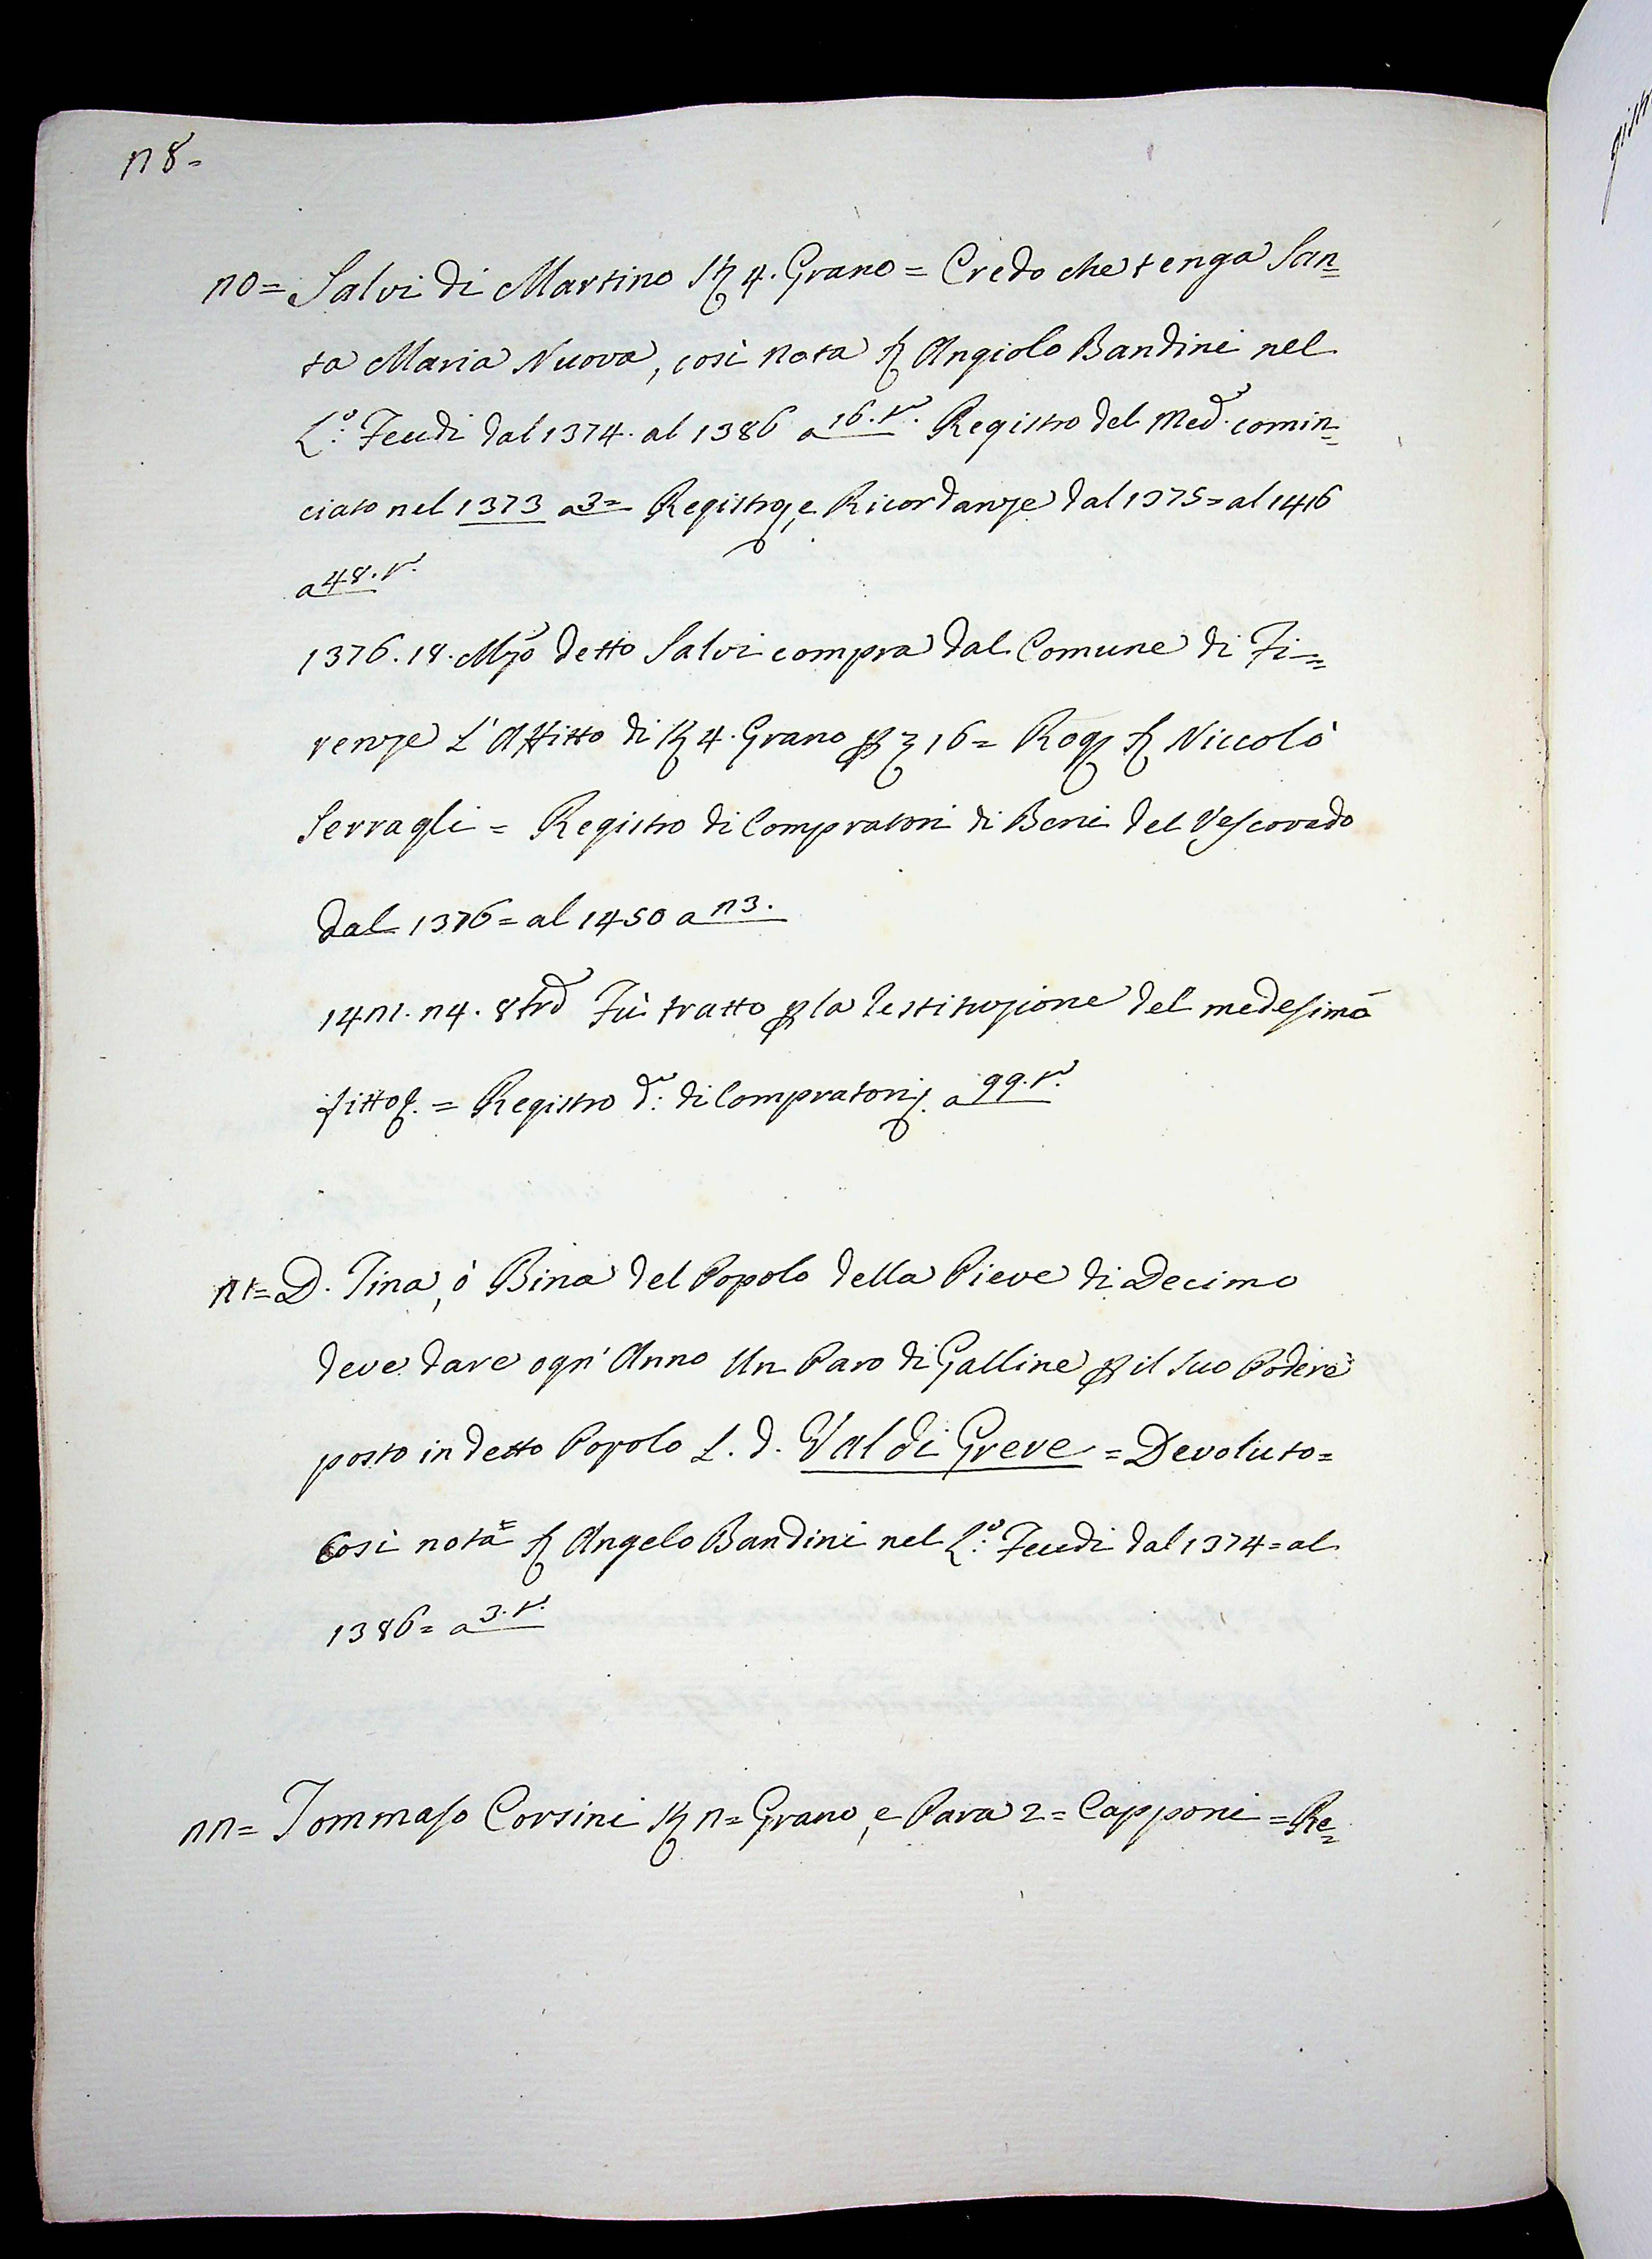 28=
20= Salvi di Martino St. 4. Grano = Credo che tenga San=
ta Maria Nuova, così nota Sr. Angiolo Bandini nel
L.o: Feudi dal 1374. al 1386 a 16. t. Registro del Med. comin=
ciato nel 1373 a 3= Registro, e Ricordanze dal 1375= al 1416
a 48. t.
1376. 18. Mzo detto Salvi compra dal Comune di Fi=
renze L'Affitto di St. 4. Grano p £ 16= Rog. Sr. Niccolò
Serragli = Registro di Compratori di Beni del Vescovado
dal 1376= al 1450 a 23.
1421. 24. 8bre Fù tratto p la restituzione del medesimo
fitto. = Registro do: di Compratori. a 99. t.
21= D. Tina, ò Bina del Popolo della Pieve di Decimo
deve dare ogn' Anno Un Paro di Galline p il suo Podere
posto in detto Popolo L. d. Val di Greve = Devoluto=
Così nota= Sr. Angelo Bandini nel L.o: Feudi dal 1374= al
1386= a 3. t.
22= Tommaso Corsini St. 2= Grano, e Para 2= Capponi = Re=